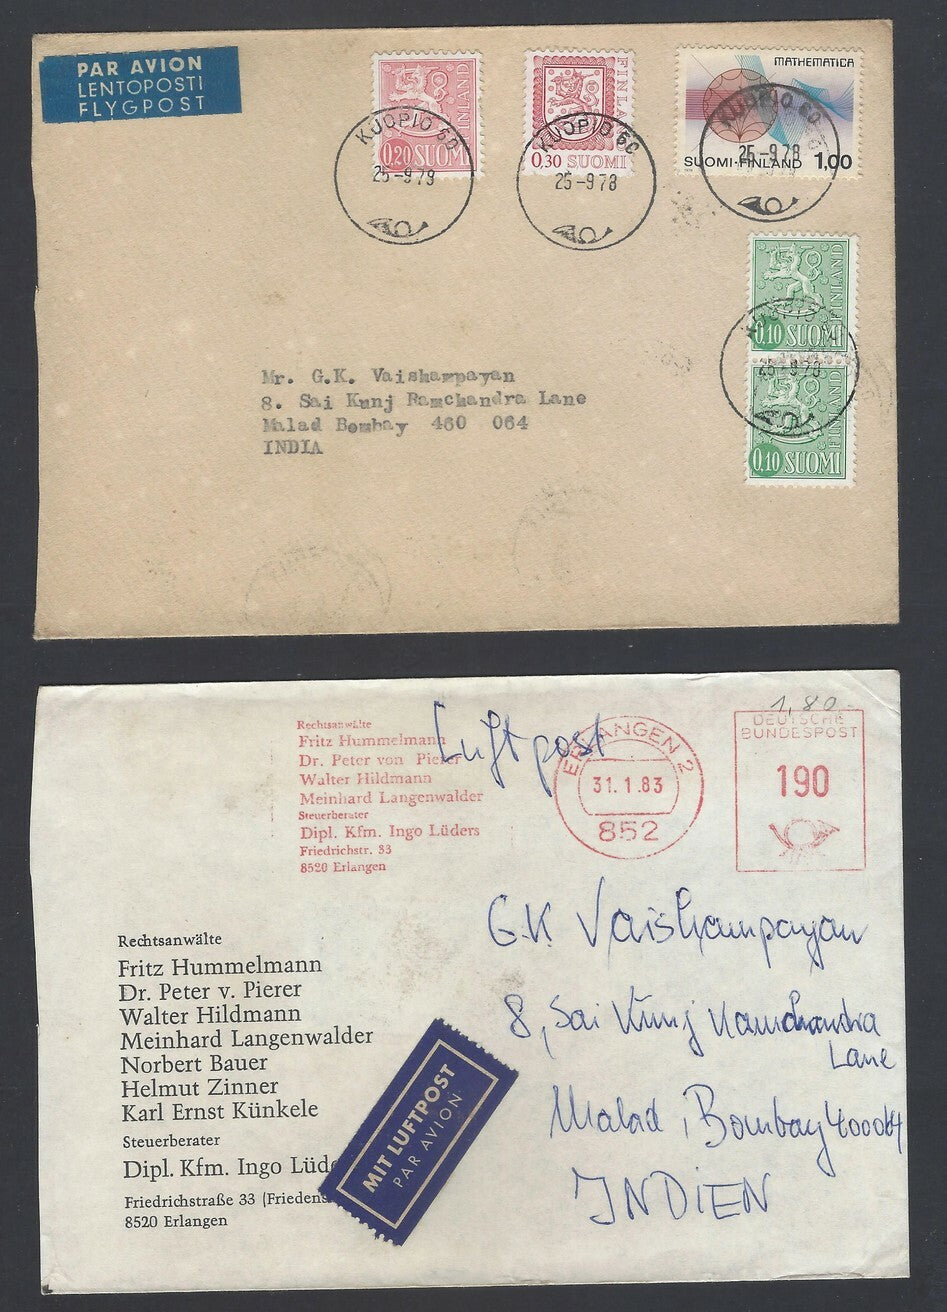 PAR AVION
LENTOPOSTI
FLYGPOST
FINLAND
0,20 SUOMI
KUOPIO 60
25-9 79
FINLA
0,30 SUOMI
KUOPIO 60
25-9 78
MATHEMATICA
SUOMI-FINLAND 1,00
KUOPIO 60
25-9 78
FINLAND
0,10 SUOMI
KUOPIO
25-9 78
FINLAND
0,10 SUOMI
Mr. G.K. Vaishampayan
8. Sai Kunj Ramchandra Lane
Malad Bombay 460 064
INDIA
1,80
Rechtsanwälte
Fritz Hummelmann
Dr. Peter von Pierer
Walter Hildmann
Meinhard Langenwalder
Steuerberater
Dipl. Kfm. Ingo Lüders
Friedrichstr. 33
8520 Erlangen
Luftpost
ERLANGEN 2
31.1.83
852
DEUTSCHE
BUNDESPOST
190
G.K Vaishampayan
8, Sai Kunj Ramchandra
Lane
Malad, Bombay 400064
INDIEN
Rechtsanwälte
Fritz Hummelmann
Dr. Peter v. Pierer
Walter Hildmann
Meinhard Langenwalder
Norbert Bauer
Helmut Zinner
Karl Ernst Künkele
Steuerberater
Dipl. Kfm. Ingo Lüde
Friedrichstraße 33 (Friedens
8520 Erlangen
MIT LUFTPOST
PAR AVION